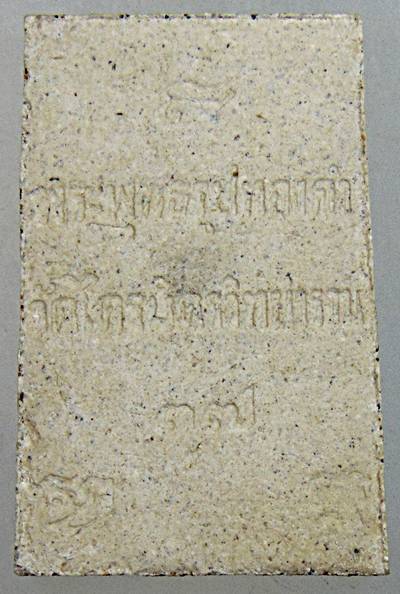 พระพุทธรูปทองคำ
วัดไตรมิตรวิทยาราม
๓๗